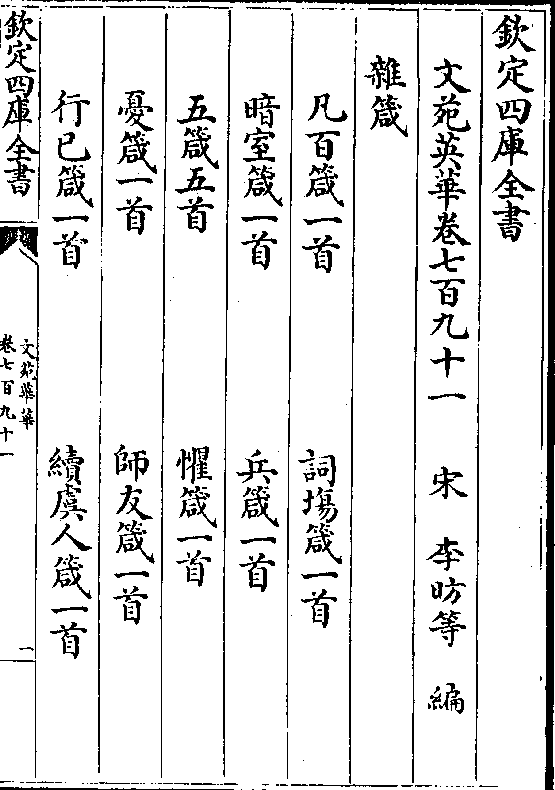 欽定四庫全書
文苑英華卷七百九十一 宋 李昉等 編
雜箴
凡百箴一首 詞塲箴一首
暗室箴一首 兵箴一首
五箴五首 懼箴一首
憂箴一首 師友箴一首
行已箴一首 續虞人箴一首
欽定四庫全書
文苑英華
卷七百九十一
一